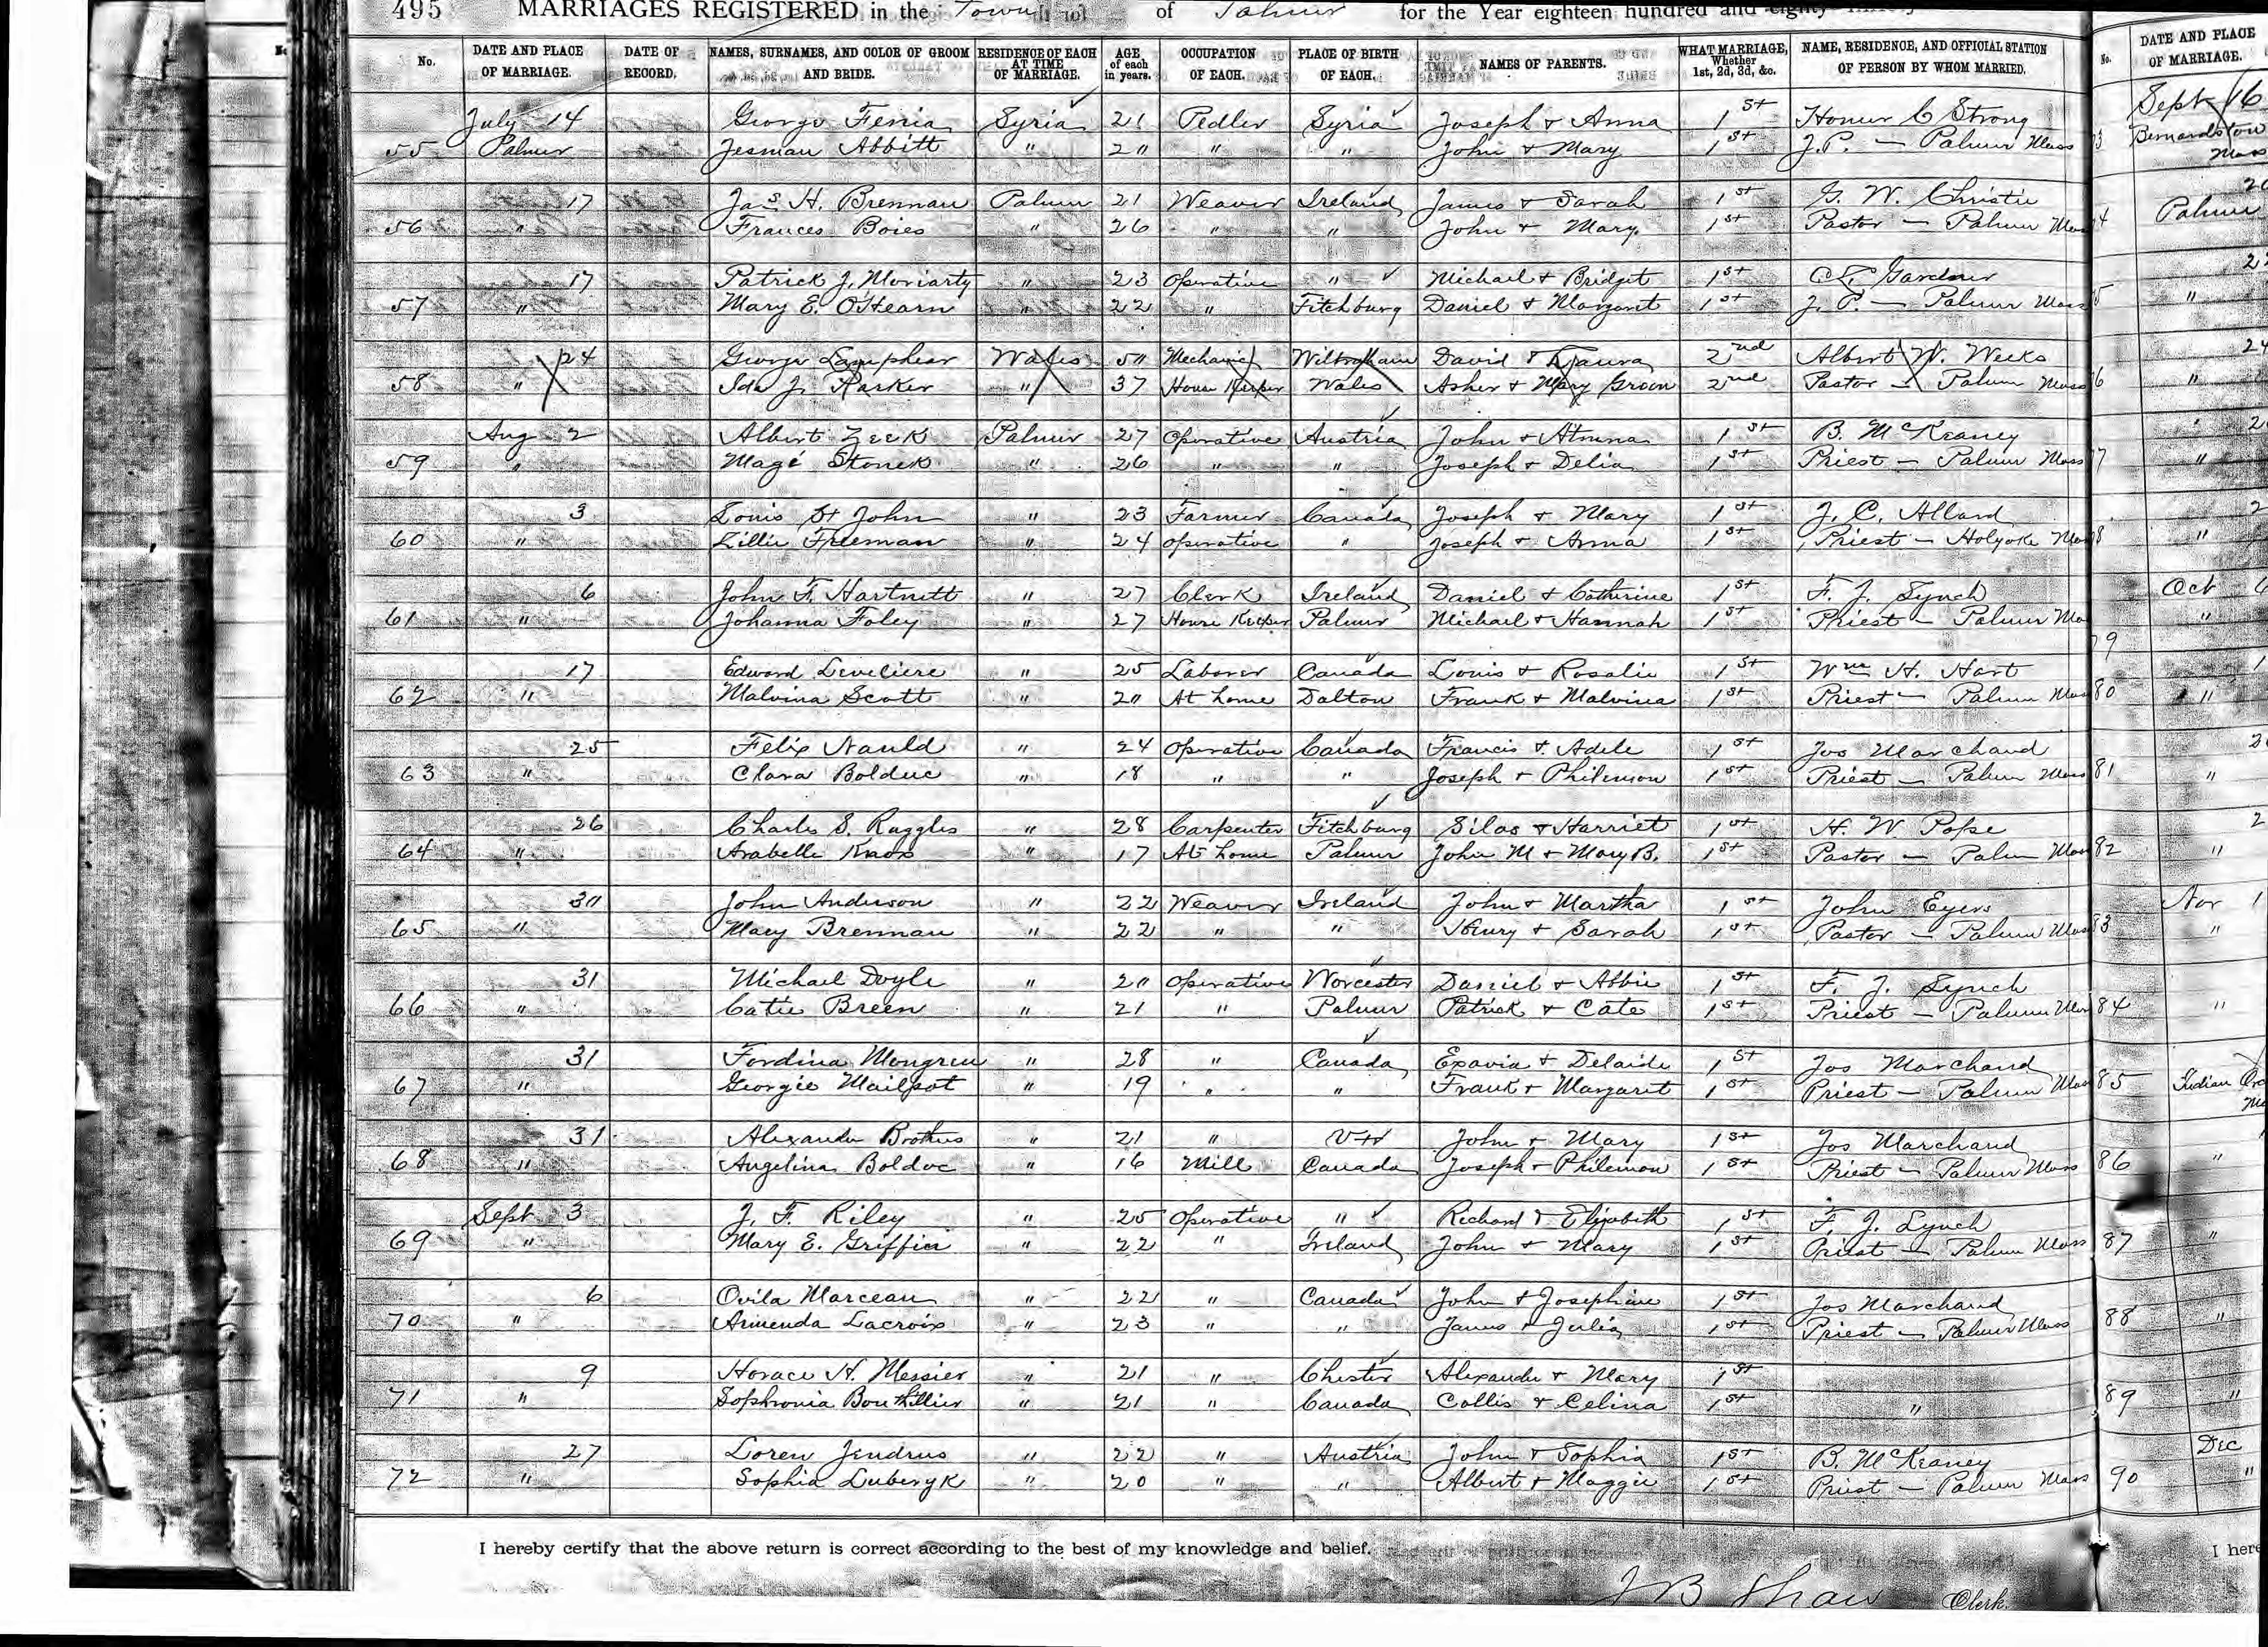 495 MARRIAGES REGISTERED in the Town of Palmer for the Year eighteen hundred and
No. DATE AND PLACE OF MARRIAGE. DATE OF RECORD. NAMES, SURNAMES, AND COLOR OF GROOM AND BRIDE. RESIDENCE OF EACH AT TIME OF MARRIAGE. AGE of each in years. OCCUPATION OF EACH. PLACE OF BIRTH OF EACH. NAMES OF PARENTS. WHAT MARRIAGE, Whether 1st, 2d, 3d, &c. NAME, RESIDENCE, AND OFFICIAL STATION OF PERSON BY WHOM MARRIED. No. DATE AND PLACE OF MARRIAGE.
July 14 George Feria Syria 21 Pedler Syria Joseph & Anna 1st Homer C Strong
55 Palmer Jesman Abbitt " 20 " " John & Mary 1st J.P. — Palmer Mass
17 Jas H. Brennan Palmer 21 Weaver Ireland James & Sarah 1st G. W. Christie
56 " Frances Boies " 26 " " John & Mary 1st Pastor — Palmer Mass
17 Patrick J. Moriarty " 23 Operative " Michael & Bridget 1st Gardner
57 " Mary E. O'Hearn " 22 " Fitchburg Daniel & Margaret 1st J. P. — Palmer Mass
24 George Lamphear Wales 50 Mechanic Wilbraham David & Laura 2nd Albert W. Weeks
58 " Ida J. Parker " 37 House Keeper Wales Asher & Mary Green 2nd Pastor — Palmer Mass
Aug 2 Albert Zeek Palmer 27 Operative Austria John & 1st B. McKeaney
59 " Magé Stonek " 26 " " Joseph & Delia 1st Priest — Palmer Mass
3 Louis St John " 23 Farmer Canada Joseph & Mary 1st J. C. Allard
60 " Lillie Freeman " 24 operative " Joseph & Anna 1st Priest — Holyoke Mass
6 John F. Hartnett " 27 Clerk Ireland Daniel & Catherine 1st F. J. Lynch
61 " Johanna Foley " 27 House Keeper Palmer Michael & Hannah 1st Priest — Palmer Ma
17 Edward Leveliere " 25 Laborer Canada Louis & Rosalie 1st Wm H. Hart
62 " Malvina Scott " 20 At home Dalton Frank & Malvina 1st Priest — Palmer Mass
25 Felix Nauld " 24 Operative Canada Francis & Adele 1st Jos Marchand
63 " Clara Bolduc " 18 " " Joseph & Philemon 1st Priest — Palmer Mass
26 Charles S. Ruggles " 28 Carpenter Fitchburg Silas & Harriet 1st H. W. Pope
64 " Arabelle Knox " 17 At home Palmer John M & Mary B. 1st Pastor — Palmer Mass
30 John Anderson " 22 Weaver Ireland John & Martha 1st John Eyers
65 " Mary Brennan " 22 " " Henry & Sarah 1st Pastor — Palmer Mass
31 Michael Doyle " 20 Operative Worcester Daniel & Abbie 1st F. J. Lynch
66 " Catie Breen " 21 " Palmer Patrick & Cate 1st Priest — Palmer Mass
31 Fordina Mongreu " 28 " Canada Exavia & Delaide 1st Jos Marchand
67 " Georgie Mailpot " 19 " " Frank & Margaret 1st Priest — Palmer Mass
31 Alexander Brothers " 21 " Vt John & Mary 1st Jos Marchand
68 " Angelina Bolduc " 16 Mill Canada Joseph & Philemon 1st Priest — Palmer Mass
Sept 3 J. F. Riley " 25 Operative " Richard & Elizabeth 1st F. J. Lynch
69 " Mary E. Griffin " 22 " Ireland John & Mary 1st Priest — Palmer Mass
6 Ovila Marceau " 22 " Canada John & Josephine 1st Jos Marchand
70 " Armenda Lacroix " 23 " " James & Julia 1st Priest — Palmer Mass
9 Horace H. Messier " 21 " Chester Alexander & Mary 1st
71 " Sophronia Bouthillier " 21 " Canada Collis & Celina 1st "
27 Loren Jendrus " 22 " Austria John & Sophia 1st B. McKeaney
72 " Sophia Luberyk " 20 " " Albert & Maggie 1st Priest — Palmer Mass
I hereby certify that the above return is correct according to the best of my knowledge and belief.
J B Shaw Clerk.
Sept 16
Bernardston
Mass
Palmer
"
24
"
"
"
Oct
"
79
80 "
81 "
82 "
Nov 1
83 "
84 "
85 Indian
86 "
87 "
88 "
89 "
Dec
90 "
I here